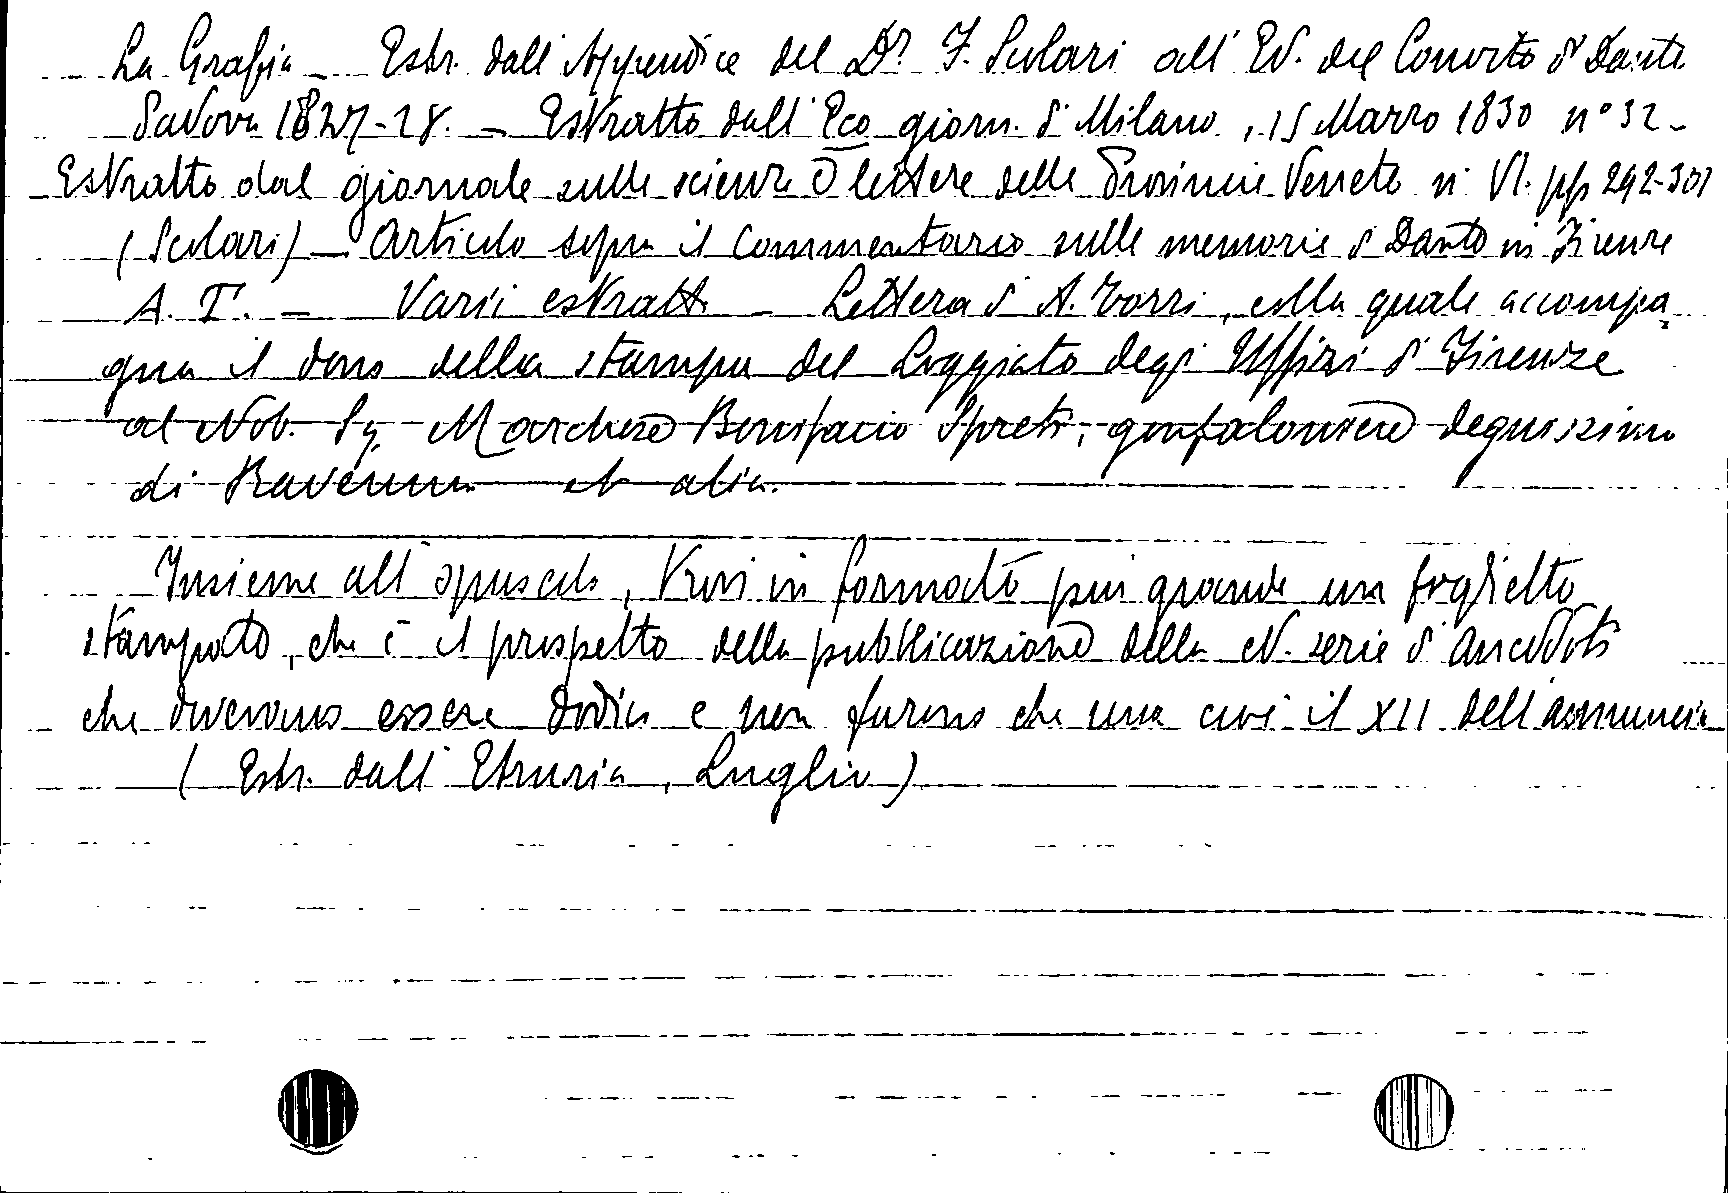 La Grafia – Estr. dall'Appendice del Dr F. Scolari all' Ed. del Convito di Dante
Padova 1827-28. – Estratto dall' Eco giorn. di Milano, 15 Marzo 1830 n° 32 –
Estratto dal giornale sulle scienze e lettere delle Provincie Venete n. VI. pp 292-301
(Scolari) – Articolo sopra il Commentario sulle memorie di Dante in Firenze
A. T. – Varii estratti – Lettera di A. Torri, colla quale accompa
gna il dono della stampa del Loggiato degi Uffizi di Firenze
al Nob. Sig. Marchese Bonifacio Spreti, gonfaloniere degnissimo
di Ravenna et alia.
Insieme all' opuscolo, trovi in formato più grande un foglietto
stampato, che è il prospetto della pubblicazione della N. serie di Aneddoti
che dovevano essere dodici e non furono che una cioè il XII dell'annuncio
(Estr. dall' Etruria, Luglio)